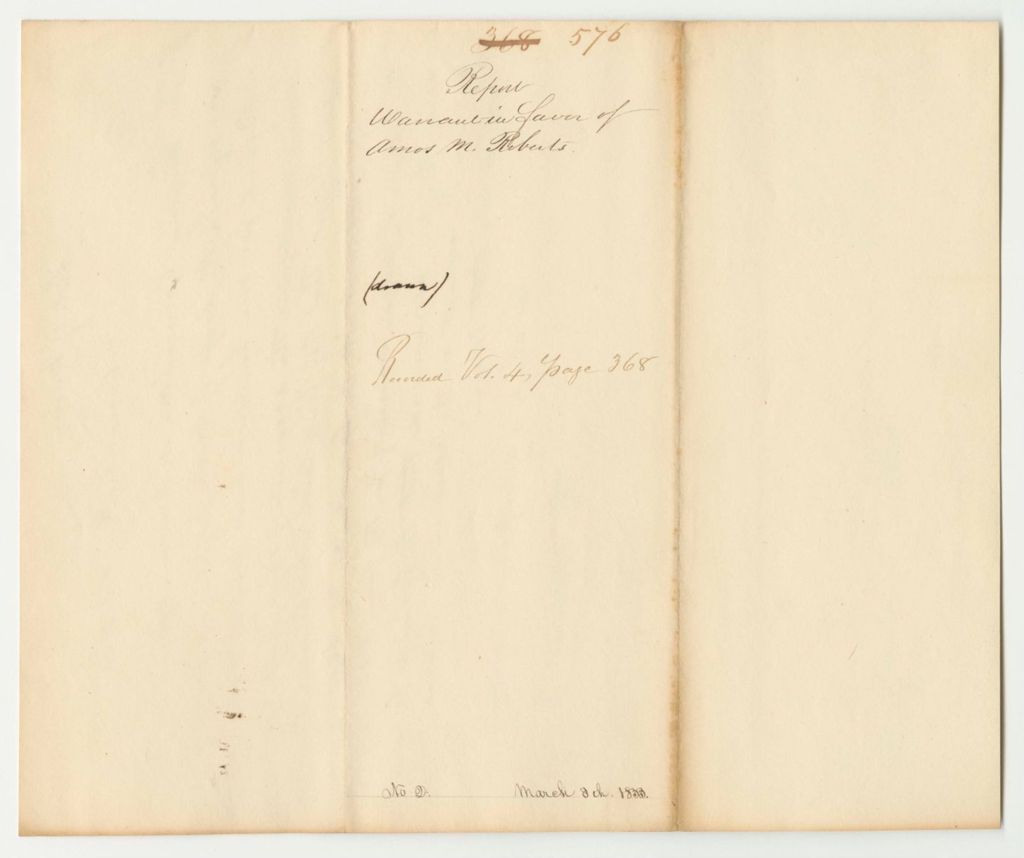 368 576
Report
Warrant in favor of
Amos M. Roberts.
(drawn)
Recorded Vol. 4, page 368
No 2. March 1833.